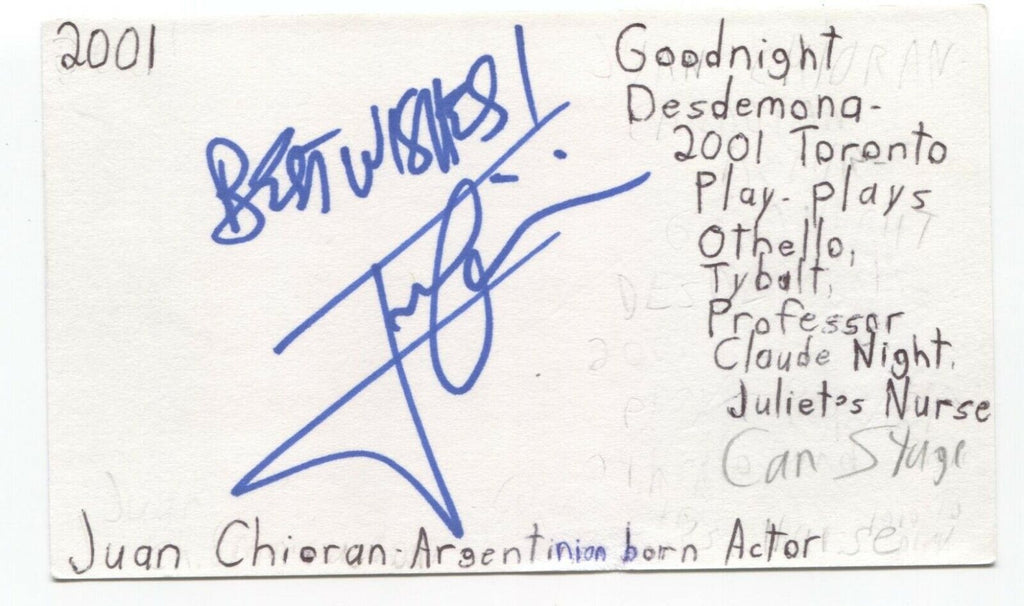 2001
BEST WISHES!
Goodnight
Desdemona-
2001 Toronto
Play- plays
Othello,
Tybalt,
Professor
Claude Night,
Juliet's Nurse
Can Stage
Juan Chioran-Argentinian born Actor